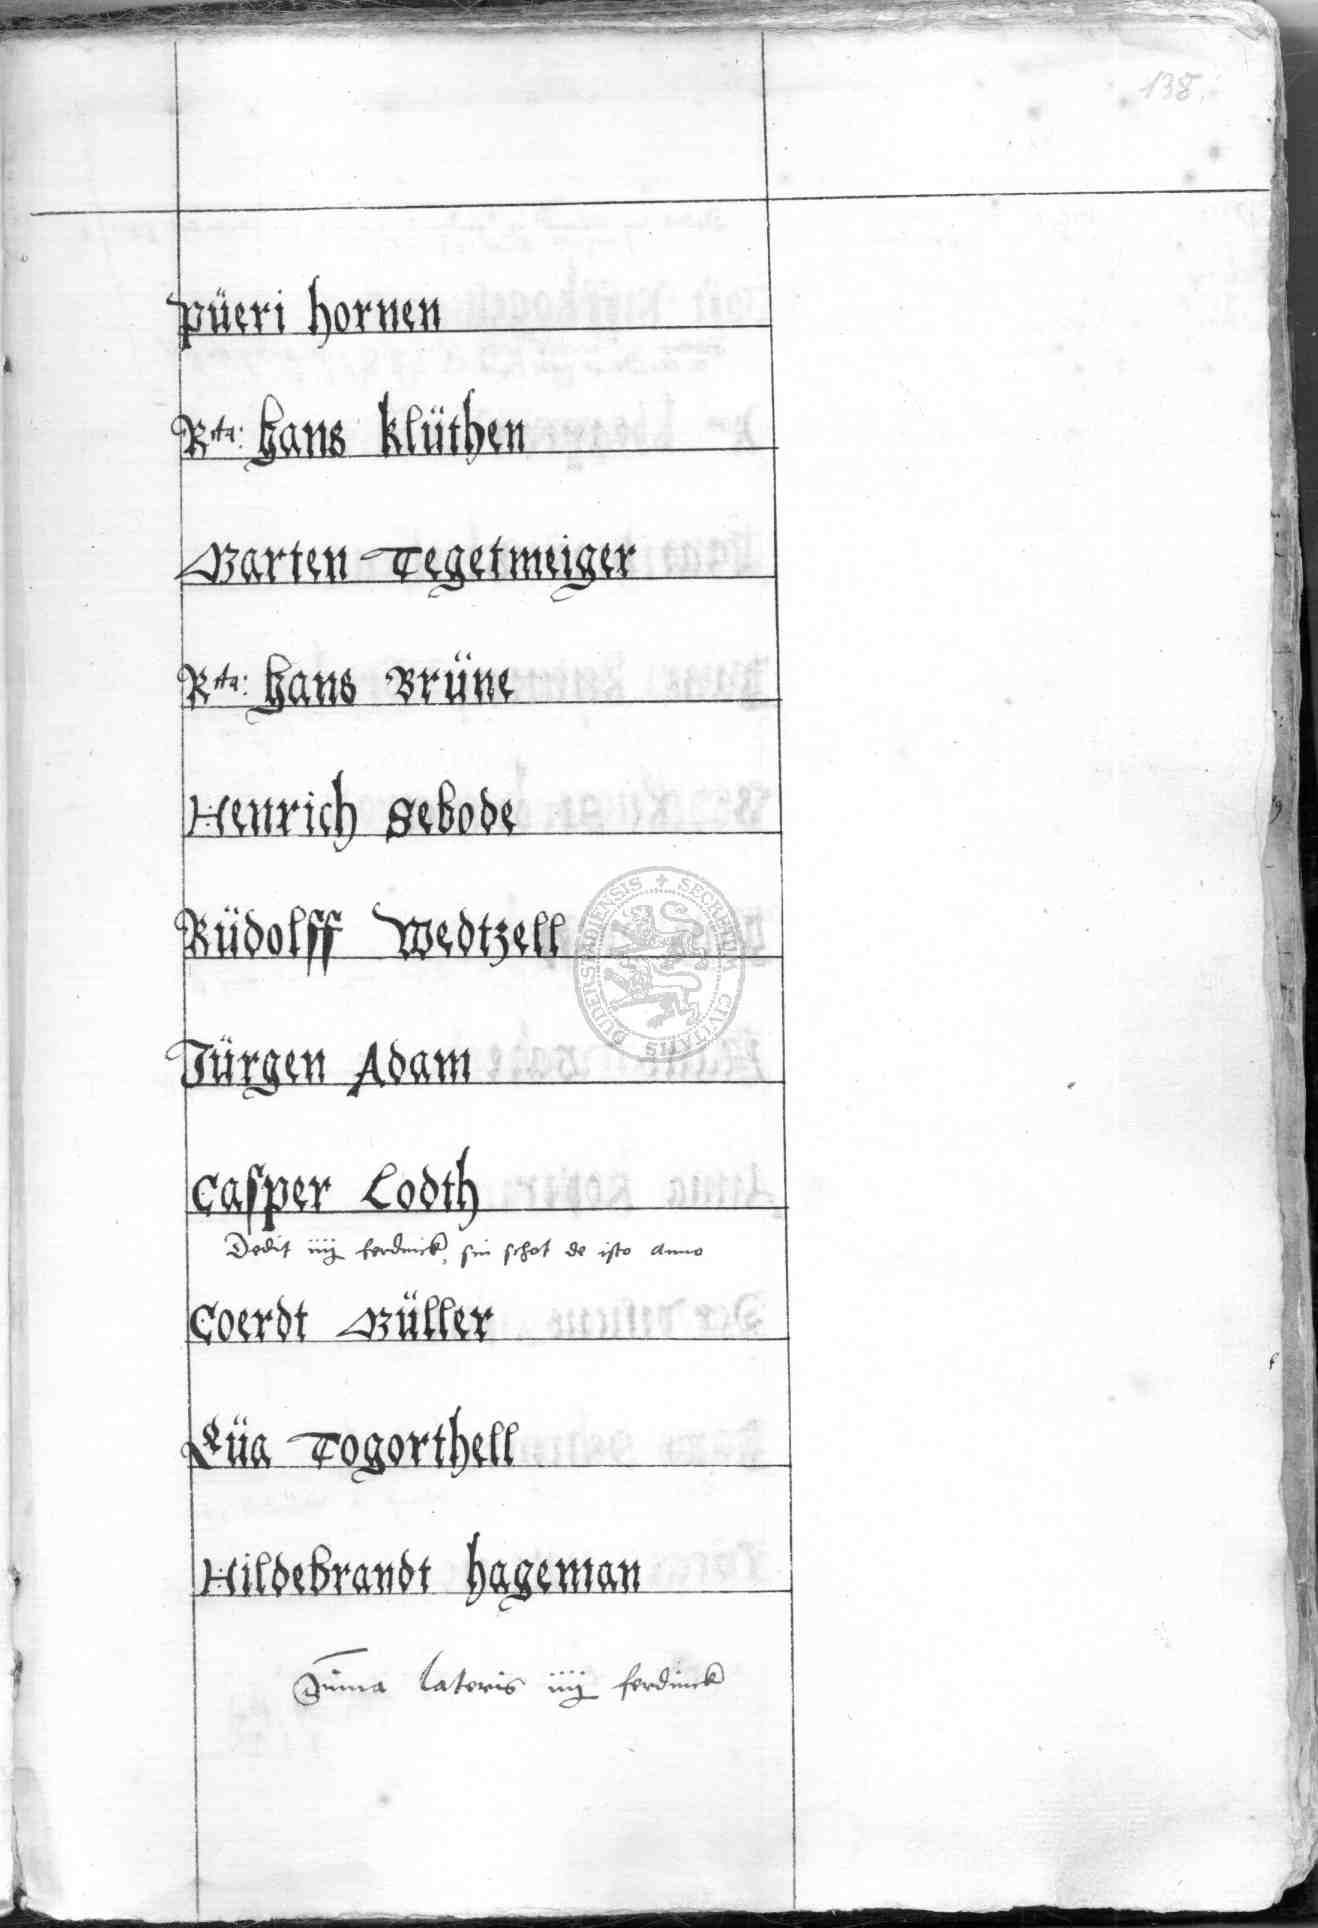 138.
Püeri hornen
R^ta: Hans Klüthen
Marten Tegetmeiger
R^ta: Hans Brüne
Henrich Sebode
Rüdolff Wedtzell
Jürgen Adam
Casper Lodth
Dedit iiij ferdinck, sin schot de isto anno
Coerdt Müller
Togorthell
Hildebrandt hageman
Suma lateris iiij ferdinck
SECRETUM CIVITATIS DUDERSTADIENSIS